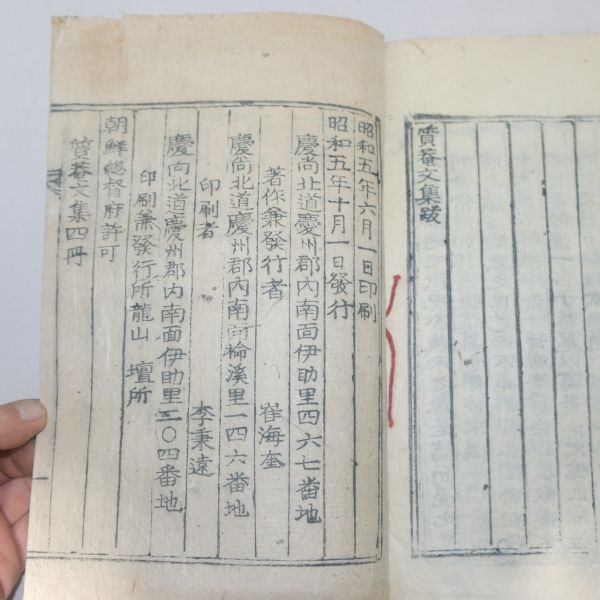 質菴文集跋
昭和五年六月一日印刷
昭和五年十月一日發行
慶尙北道慶州郡內南面伊助里四六七番地
著作兼發行者 崔海奎
慶尙北道慶州郡內南面檜溪里一四六番地
印刷者 李秉遠
慶尙北道慶州郡內南面伊助里二〇四番地
印刷兼發行所龍山壇所
朝鮮總督府許可
質菴文集四冊